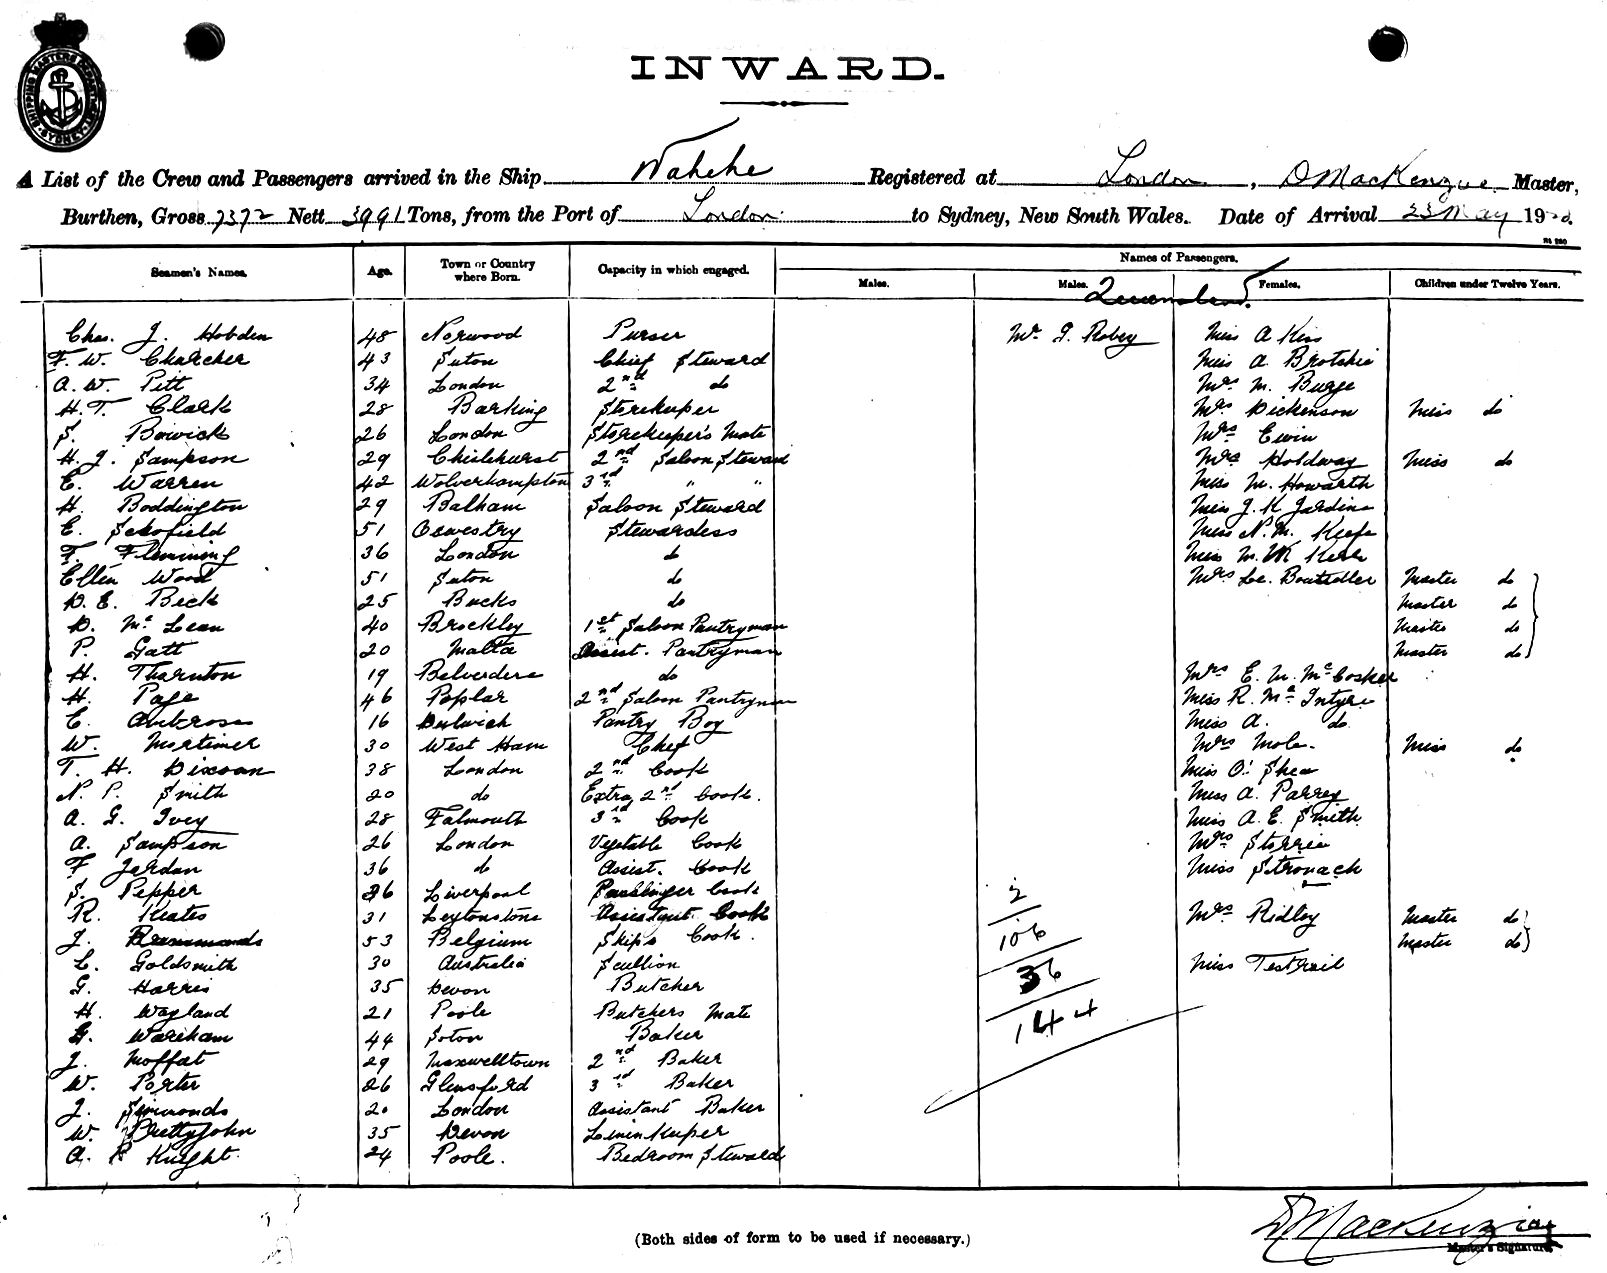 SHIPPING MASTERS DEPARTMENT
SYDNEY
INWARD.
A List of the Crew and Passengers arrived in the Ship Wahehe Registered at London, D MacKenzie Master,
Burthen, Gross 7372 Nett 3991 Tons, from the Port of London to Sydney, New South Wales. Date of Arrival 23 May 19
Names of Passengers.
Seamen's Names. Age. Town or Country where Born. Capacity in which engaged. Males. Males. Females. Children under Twelve Years.
Queensland
Chas. J. Hobden 48 Norwood Purser Mr. G. Robey Miss A Kiss
F. W. Churcher 43 Soton Chief Steward Miss A. Brotchie
A. W. Pitt 34 London 2nd do Mrs M. Burge
H. T. Clark 28 Barking Storekeeper Mrs Dickenson Miss do
S. Bowick 26 London Storekeeper's Mate Mrs Ewin
H. J. Sampson 29 Chislehurst 2nd Saloon Steward Mrs Holdway Miss do
E. Warren 42 Wolverhampton 3rd " " Miss M. Howarth
H. Boddington 29 Balham Saloon Steward Miss J. K Jardine
E. Schofield 51 Oswestry Stewardess Miss N. M. Keefe
F. Flemming 36 London do Miss M. W. Kerr
Ellen Wood 51 Soton do Mrs Le. Boutidler Master do
D. E. Beck 25 Bucks do Master do
D. Mc Lean 40 Brockley 1st Saloon Pantryman Master do
P. Gatt 20 Malta Assist. Pantryman Master do
H. Thornton 19 Belvedere do Mrs E. M. McCosker
H. Page 46 Poplar 2nd Saloon Pantryman Miss R. Mc Intyre
E. Ambrose 16 Dulwich Pantry Boy Miss A. do
W. Mortimer 30 West Ham Chef Mrs Mole. Miss do
T. H. Dixoan 38 London 2nd Cook Miss O' Shea
N. P. Smith 20 do Extra 2nd Cook. Miss A. Parrey
A. G. Ivey 28 Falmouth 3rd Cook Miss A. E. Smith
A. Sampson 26 London Vegetable Cook Mrs Storrie
F Jordan 36 do Assist. Cook Miss Stronach
S. Pepper 26 Liverpool Passenger Cook 2
R. Keates 31 Leytonstone Assistant Cook Mrs Ridley Master do
J. 53 Belgium Ship's Cook. 106 Master do
L. Goldsmith 30 Australia Scullion 36 Miss Testrail
G. Harris 35 Devon Butcher
H. Wayland 21 Poole Butchers Mate 144
G. Wareham 44 Soton Baker
J. Moffat 29 Maxwelltown 2nd Baker
W. Porter 26 Glemsford 3rd Baker
J. Simmonds 20 London Assistant Baker
W. Prettyjohn 35 Devon Linen Keeper
A. P Knight. 24 Poole. Bedroom Steward
D MacKenzie
(Both sides of form to be used if necessary.) Master's Signature.